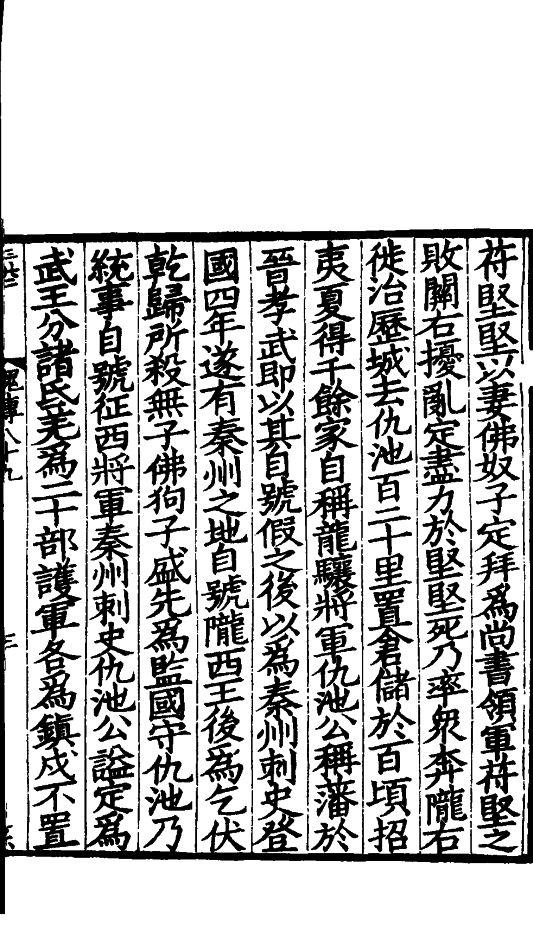 苻堅堅以妻佛奴子定拜爲尚書領軍苻堅之
敗關右擾亂定盡力於堅堅死乃率衆奔隴右
徙治歷城去仇池百二十里置倉儲於百頃招
夷夏得千餘家自稱龍驤將軍仇池公稱藩於
晉孝武即以其自號假之後以爲秦州刺史登
國四年遂有秦州之地自號隴西王後爲乞伏
乾歸所殺無子佛狗子盛先爲監國守仇池乃
統事自號征西將軍秦州刺史仇池公謚定爲
武王分諸氐羌爲二十部護軍各爲鎮戍不置
魏傳八十九